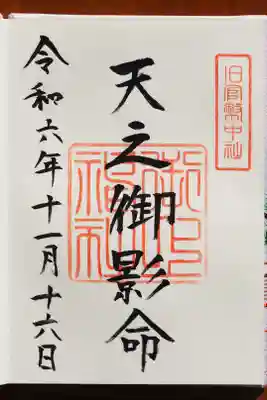 旧官幣中社
天之御影命
令和六年十一月十六日